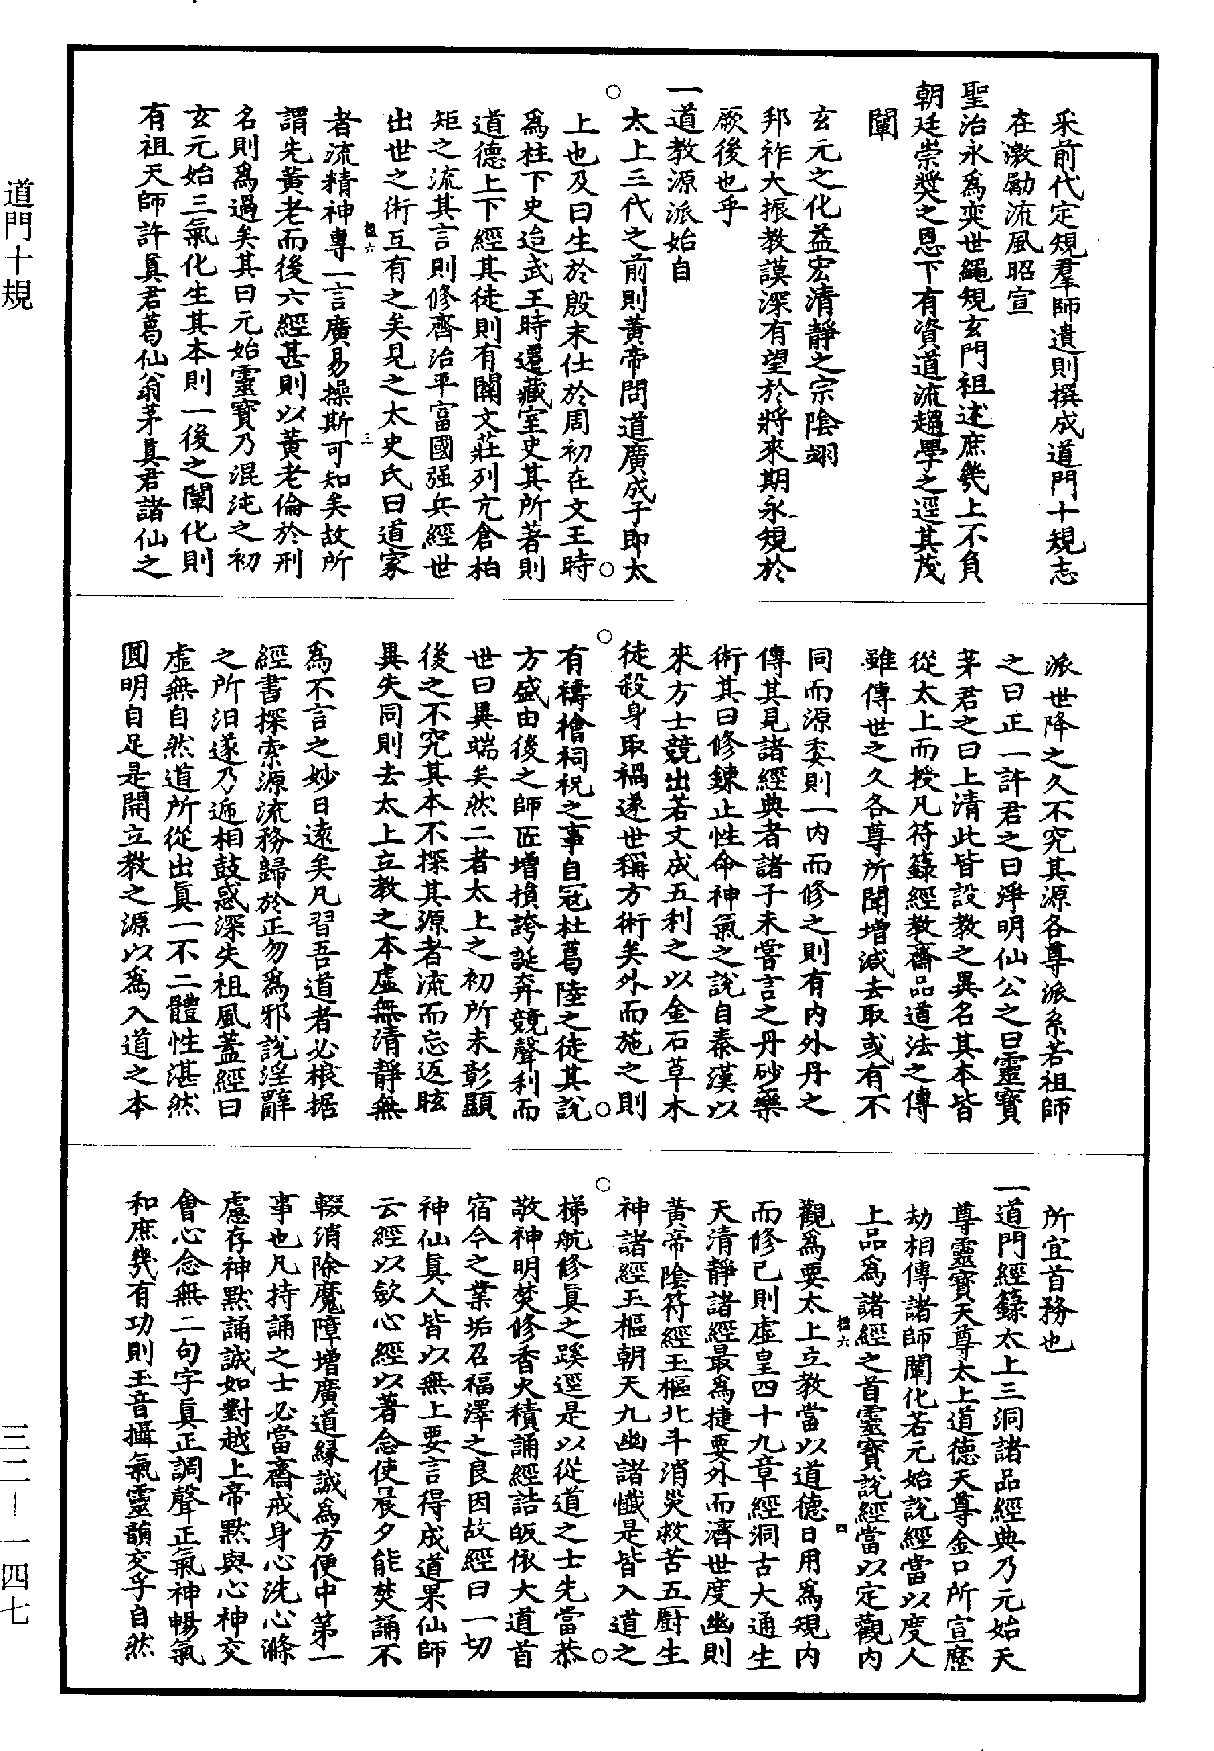 采前代定規羣師遺則撰成道門十規志
在激勵流風昭宣
聖治永爲奕世繩規玄門祖述庶幾上不負
朝廷崇獎之恩下有資道流趨學之逕其茂
闡
玄元之化益宏清靜之宗陰翊
邦祚大振教謨深有望於將來期永規於
厥後也乎
一道教源派始自
太上三代之前則黃帝問道廣成子即太
上也及曰生於殷末仕於周初在文王時
爲柱下史迨武王時遷藏室史其所著則
道德上下經其徒則有關文莊列亢倉柏
矩之流其言則修齊治平富國强兵經世
出世之術互有之矣見之太史氏曰道家
者流精神專一言廣易操斯可知矣故所
謂先黃老而後六經甚則以黃老倫於刑
名則爲過矣其曰元始靈寳乃混沌之初
玄元始三氣化生其本則一後之闡化則
有祖天師許眞君葛仙翁茅眞君諸仙之
派世降之久不究其源各尊派系若祖師
之曰正一許君之曰淨明仙公之曰靈寳
茅君之曰上清此皆設教之異名其本皆
從太上而授凡符籙經教齋品道法之傳
雖傳世之久各尊所聞增減去取或有不
同而源委則一内而修之則有内外丹之
傳其見諸經典者諸子未嘗言之丹砂藥
術其曰修鍊止性命神氣之說自秦漢以
來方士競出若文成五利之以金石草木
徒殺身取禍遂世稱方術矣外而施之則
有禱檜祠祝之事自冦杜葛陸之徒其說
方盛由後之師匠增損誇誕奔競聲利而
世曰異端矣然二者太上之初所未彰顯
後之不究其本不探其源者流而忘返眩
異失同則去太上立教之本虛無清靜無
爲不言之妙日遠矣凡習吾道者必根據
經書探索源流務歸於正勿爲邪說淫辭
之所汩遂乃遞相鼓惑深失祖風蓋經曰
虛無自然道所從出眞一不二體性湛然
圓明自足是開立教之源以爲入道之本
所宜首務也
一道門經籙太上三洞諸品經典乃元始天
尊靈寳天尊太上道德天尊金口所宣歷
劫相傳諸師闡化若元始說經當以度人
上品爲諸經之首靈寳說經當以定觀内
觀爲要太上立教當以道德日用爲規内
而修己則虛皇四十九章經洞古大通生
天清靜諸經最爲捷要外而濟世度幽則
黃帝陰符經玉樞北斗消災救苦五厨生
神諸經玉樞朝天九幽諸懺是皆入道之
梯航修眞之蹊逕是以從道之士先當恭
敬神明焚修香火積誦經誥皈依大道首
宿今之業垢召福澤之良因故經曰一切
神仙眞人皆以無上要言得成道果仙師
云經以歛心經以著念使晨夕能焚誦不
輟消除魔障增廣道緣誠爲方便中第一
事也凡持誦之士必當齋戒身心洗心滌
慮存神默誦誠如對越上帝默與心神交
會心念無二句字眞正調聲正氣神暢氣
和庶幾有功則玉音攝氣靈韻交乎自然
道門十規
三二—一四七